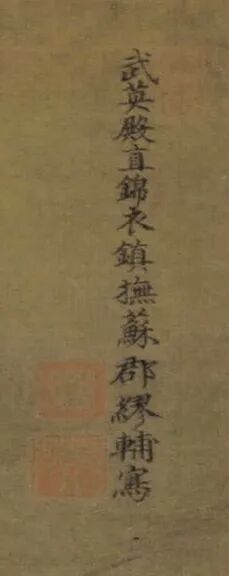 武英殿直錦衣鎮撫蘇郡繆輔寫